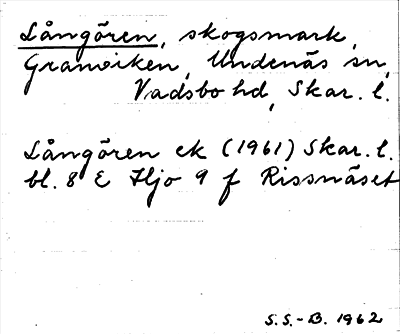 Långören, skogsmark,
Granviken, Undenäs sn,
Vadsbo hd, Skar. l.
Långören ek (1961) Skar. l.
bl. 8 E Hjo 9 f Rissnäset
S.S.-B. 1962